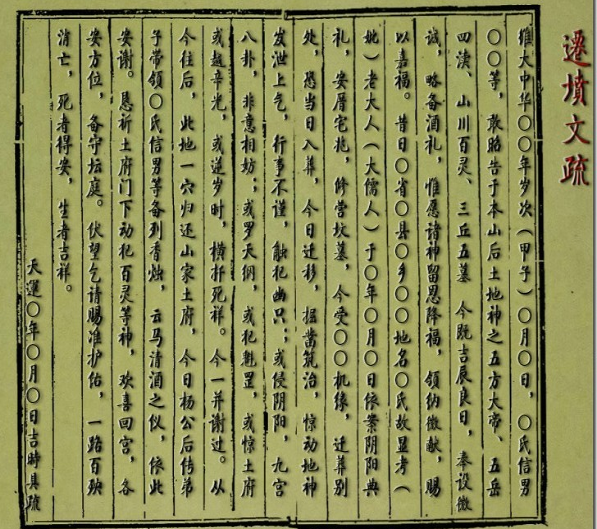 遷墳文疏
维大中华〇〇年岁次（甲子）〇月〇日，〇氏信男
〇〇等，敢昭告于本山后土地神之五方大帝、五岳
四渎、山川百灵、三丘五墓 今既吉辰良日，奉设微
诚，略备酒礼，惟愿诸神留恩降福，领纳微献，赐
以嘉福。昔日〇省〇县〇乡〇〇地名〇氏故显考（
妣）老大人（大儒人）于〇年〇月〇日依案阴阳典
礼，安厝宅兆，修营坟墓，今受〇〇机缘，迁葬别
处，恐当日入葬，今日迁移，掘凿筑治，惊动地神
发泄上气，行事不谨，触犯幽只；或侵阴阳，九宫
八卦，非意相妨；或罗天网，或犯魁罡，或惊土府
或越辛光，或逆岁时，横扦死祥。今一并谢过。从
今往后，此地一穴归还山家土府，今日杨公后传弟
子带领〇氏信男等备到香烛，云马清酒之仪，依此
安谢。恳祈土府门下动犯百灵等神，欢喜回宫，各
安方位，备守坛庭。伏望乞请赐准护佑，一路百殃
消亡，死者得安，生者吉祥。
天運〇年〇月〇日吉時具疏